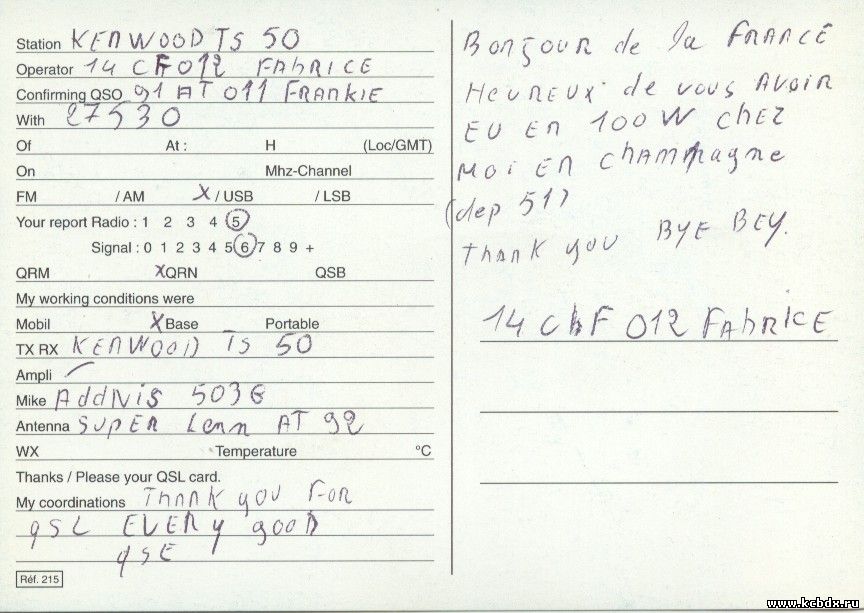 Station KENWOOD TS 50
Operator 14 CF 012 FAbRICE
Confirming QSO 91 AT 011 FRANKIE
With 27530
Of At : H (Loc/GMT)
On Mhz-Channel
FM / AM X / USB / LSB
Your report Radio : 1 2 3 4 5
Signal : 0 1 2 3 4 5 6 7 8 9 +
QRM XQRN QSB
My working conditions were
Mobil XBase Portable
TX RX KENWOOD TS 50
Ampli
Mike AddNis 503G
Antenna SUPER Lenn AT 92
WX Temperature °C
Thanks / Please your QSL card.
My coordinations Thank you FOR
QSL EVERy good
QSE
Réf. 215
BONJOUR de la FRANCE
HEUREUX de vous AVOIR
EU EN 100 W CHEZ
MOI EN chAMPAgne
(dep 51)
Thank you BYE BEY.
14 ChF 012 FAbRICE
www.kcbdx.ru